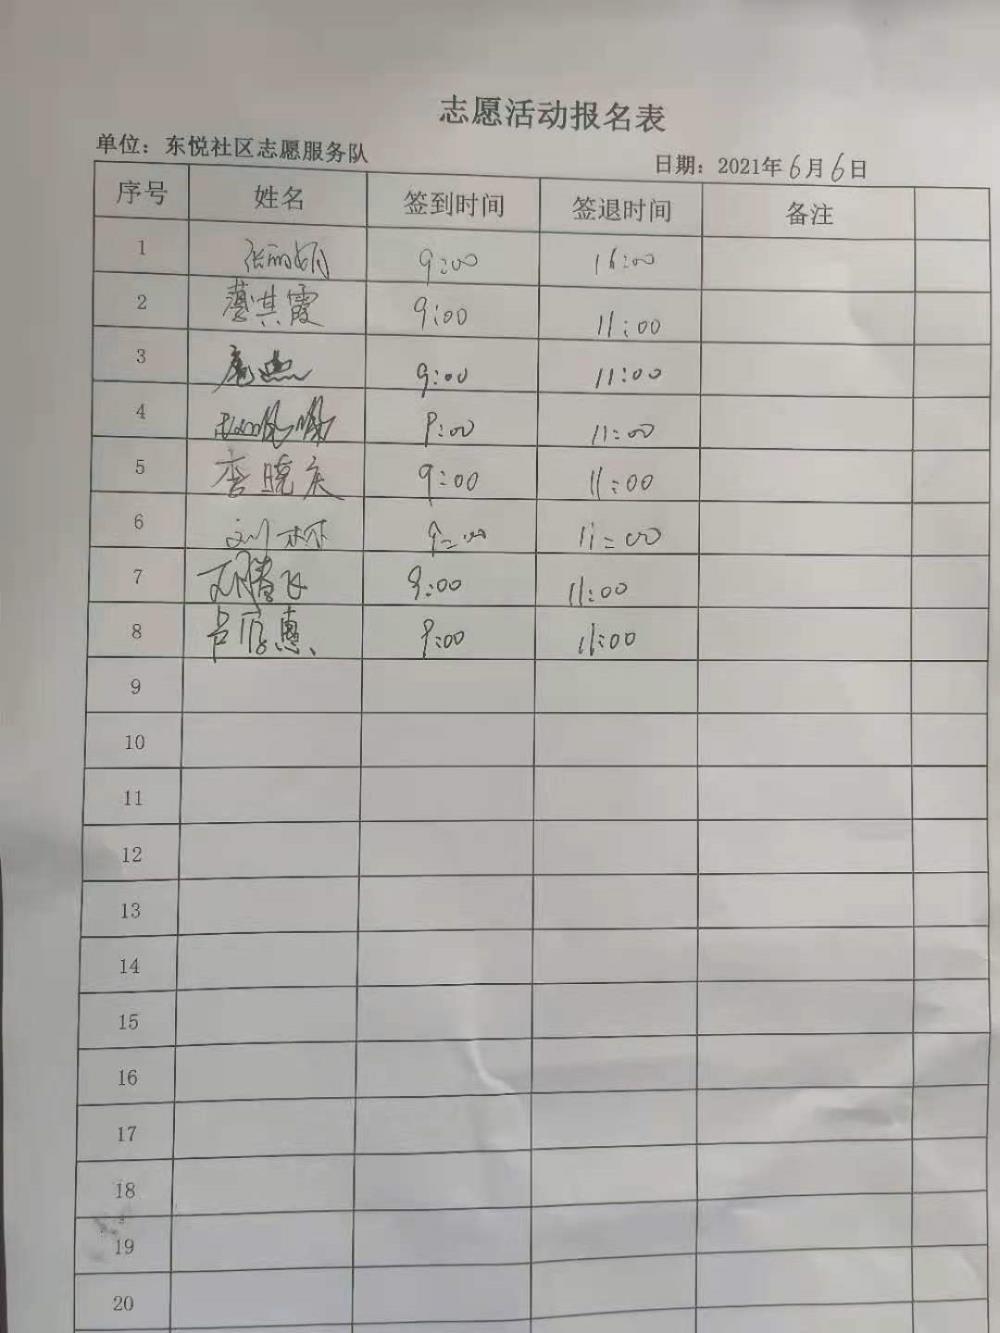 志愿活动报名表
单位：东悦社区志愿服务队 日期：2021年6月6日
序号 姓名 签到时间 签退时间 备注
1 张丽娟 9:00 16:00
2 蔡其霞 9:00 11:00
3 9:00 11:00
4 9:00 11:00
5 李晓庆 9:00 11:00
6 刘林 9:00 11:00
7 腾飞 9:00 11:00
8 惠 9:00 11:00
9
10
11
12
13
14
15
16
17
18
19
20